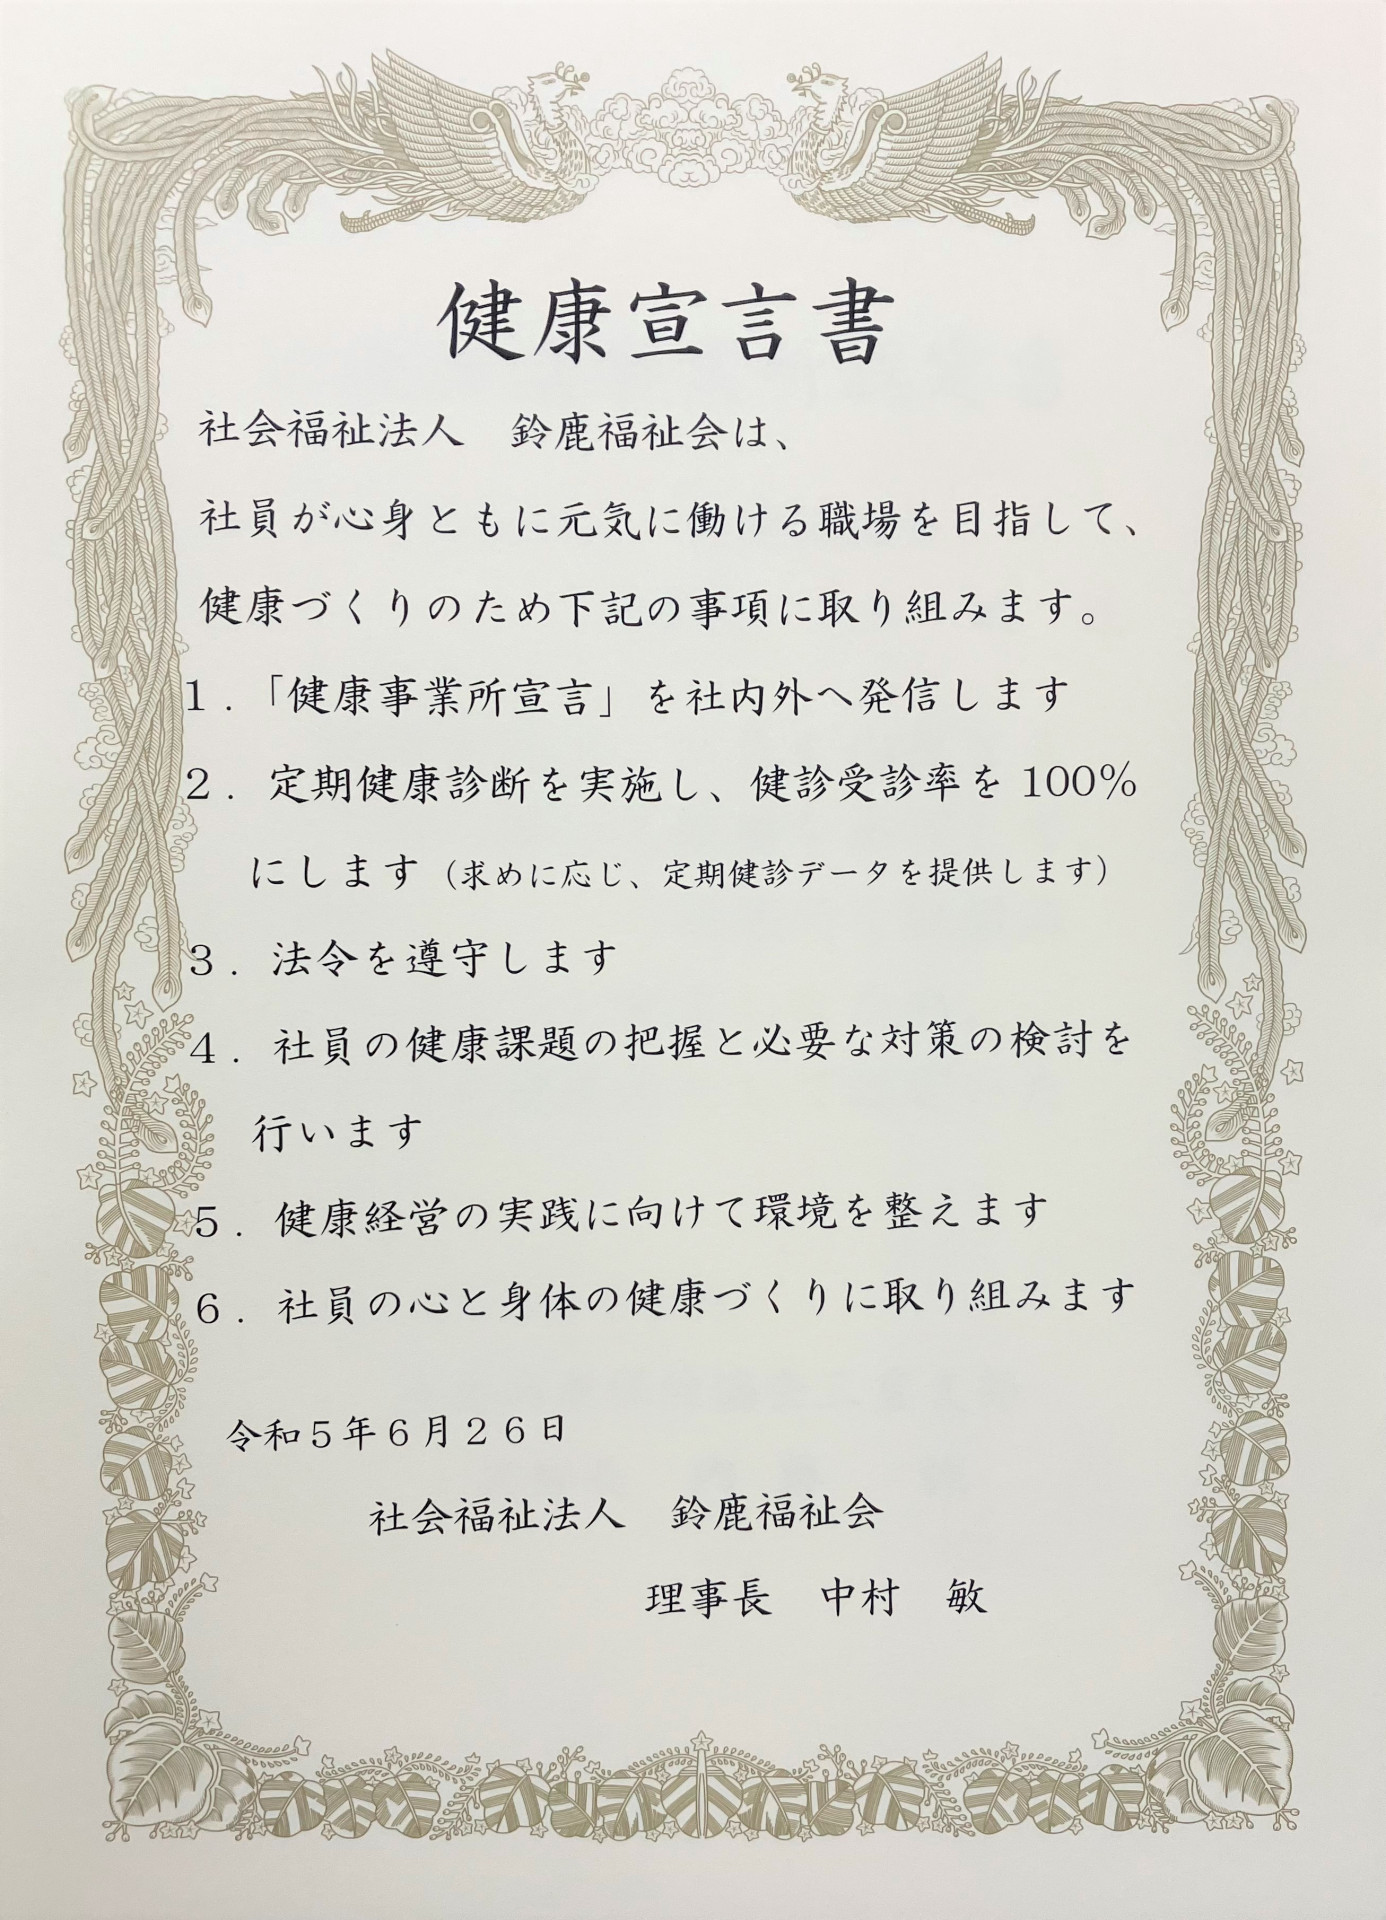 健康宣言書
社会福祉法人　鈴鹿福祉会は、
社員が心身ともに元気に働ける職場を目指して、
健康づくりのため下記の事項に取り組みます。
１．「健康事業所宣言」を社内外へ発信します
２．定期健康診断を実施し、健診受診率を 100%
にします（求めに応じ、定期健診データを提供します）
３．法令を遵守します
４．社員の健康課題の把握と必要な対策の検討を
行います
５．健康経営の実践に向けて環境を整えます
６．社員の心と身体の健康づくりに取り組みます
令和５年６月２６日
社会福祉法人　鈴鹿福祉会
理事長　中村　敏